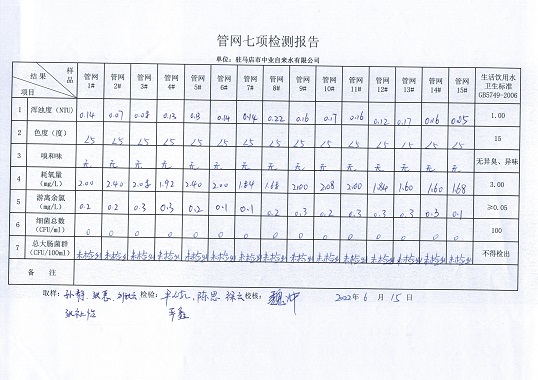 管网七项检测报告
单位：驻马店市中业自来水有限公司
结果 样品 项目 管网1# 管网2# 管网3# 管网4# 管网5# 管网6# 管网7# 管网8# 管网9# 管网10# 管网11# 管网12# 管网13# 管网14# 管网15# 生活饮用水卫生标准GB5749-2006
1 浑浊度（NTU） 0.14 0.07 0.08 0.13 0.13 0.14 0.14 0.22 0.16 0.17 0.16 0.12 0.17 0.16 0.05 1.00
2 色度（度） <5 <5 <5 <5 <5 <5 <5 <5 <5 <5 <5 <5 <5 <5 <5 15
3 嗅和味 无 无 无 无 无 无 无 无 无 无 无 无 无 无 无 无异臭、异味
4 耗氧量（mg/L） 2.00 2.40 2.08 1.92 2.40 2.00 1.84 1.68 2.00 2.08 2.00 1.84 1.60 1.60 1.68 3.00
5 游离余氯（mg/L） 0.2 0.2 0.3 0.3 0.2 0.1 0.1 0.2 0.3 0.2 0.3 0.3 0.3 0.3 0.1 ≥0.05
6 细菌总数（CFU/ml） 0 0 0 0 0 0 0 0 0 0 0 0 0 0 0 100
7 总大肠菌群（CFU/100ml） 未检出 未检出 未检出 未检出 未检出 未检出 未检出 未检出 未检出 未检出 未检出 未检出 未检出 未检出 未检出 不得检出
备注
取样： 检验： 陈思 校核： 2022年6月15日